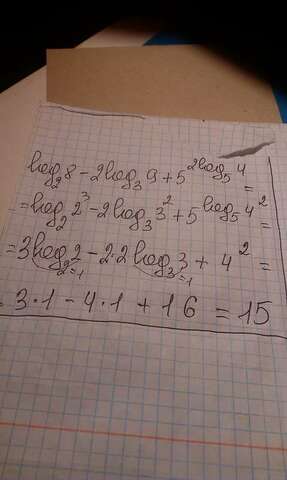 log₂8 - 2log₃9 + 5^(2log₅4) =
= log₂2³ - 2log₃3² + 5^(log₅4²) =
= 3log₂2 - 2·2log₃3 + 4² =
=1 =1
= 3·1 - 4·1 + 16 = 15